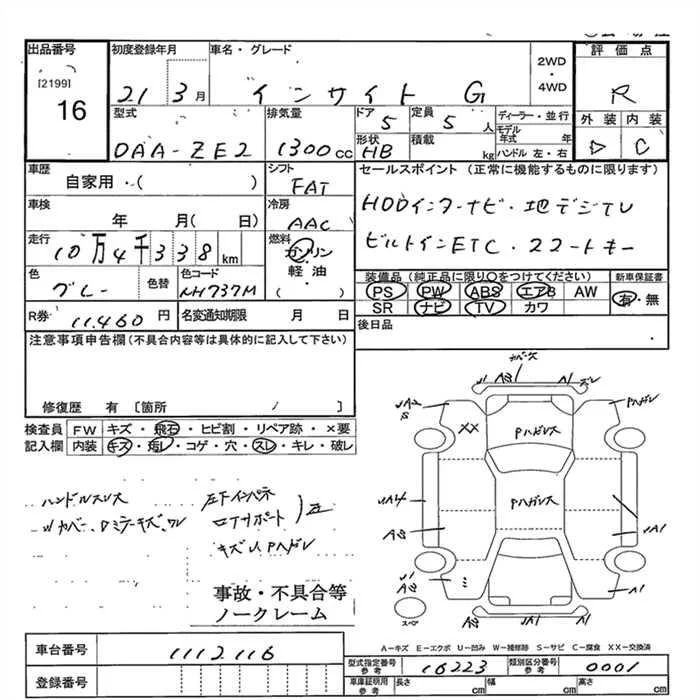 出品番号 初度登録年月 車名・グレード 評価点
[2199] 2WD・4WD
16 21 3月 インサイト G R
型式 排気量 ドア 5 定員 5人 ディーラー・並行 外装 内装
DAA-ZE2 1300cc 形状 HB 積載 kg モデル年式 年 ハンドル 左・右 D C
車歴 自家用・( ) シフト FAT セールスポイント (正常に機能するものに限ります)
車検 年 月( 日) 冷房 AAC HDDインターナビ・地デジTV
走行 10万4千338km 燃料 ガソリン・軽油・( ) ビルトインETC・
色 グレー 色替 色コード NH737M 装備品 (純正品に限り○をつけてください) 新車保証書
PS PW ABS エアB AW 有・無
SR ナビ TV カワ
R券 11.460円 名変通知期限 月 日 後日品
注意事項申告欄(不具合内容等は具体的に記入して下さい)
修復歴 有 〔箇所 / 〕
検査員 FW キズ・飛石・ヒビ割・リペア跡・×要
記入欄 内装 キズ・汚レ・コゲ・穴・スレ・キレ・破レ
カバーズレ
A3 A1
UA2 S XX PハガレS Pハガレ
Pハガレス
UA4 A3 UA1
A1
スペア
ハンドルスレス 左F インパネ
ロアサポート 歪
キズU Pハガレ
事故・不具合等
ノークレーム
A-キズ E-エクボ U-凹み W-補修跡 S-サビ C-腐食 XX-交換済
車台番号 1112116
登録番号
型式指定番号 参考 16223 類別区分番号 参考 0001
車庫証明用 参考 長さ cm 幅 cm 高さ cm